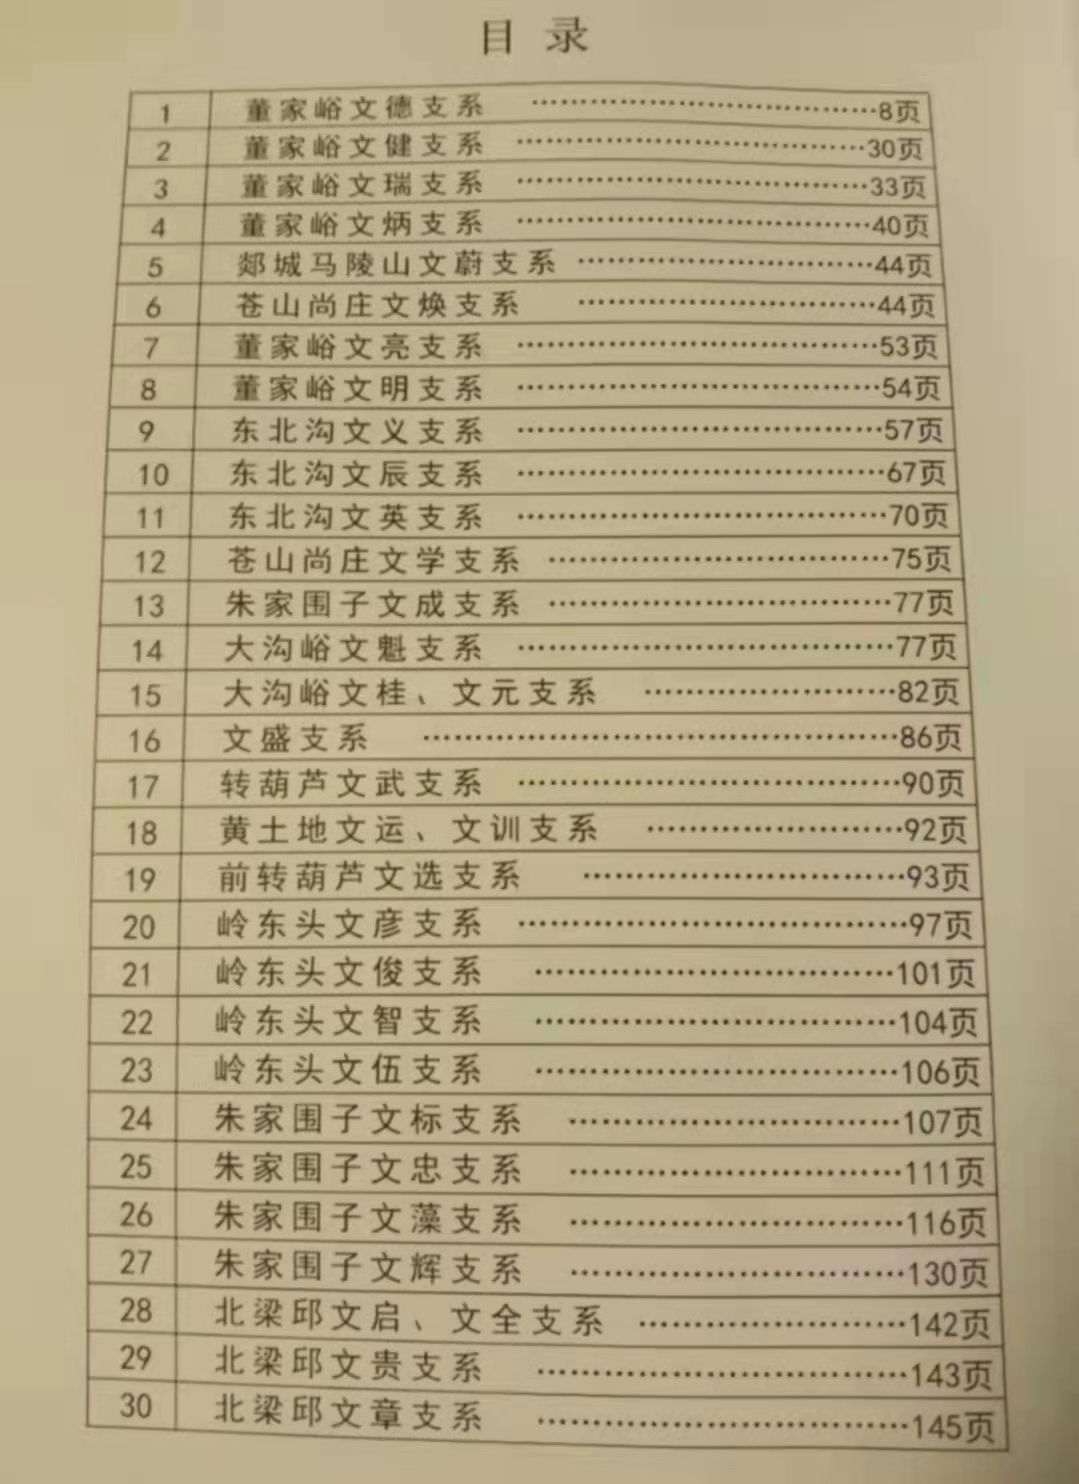 目 录
1 董家峪文德支系 ……………………………8页
2 董家峪文健支系 ……………………………30页
3 董家峪文瑞支系 ……………………………33页
4 董家峪文炳支系 ……………………………40页
5 郯城马陵山文蔚支系 …………………………44页
6 苍山尚庄文焕支系 …………………………44页
7 董家峪文亮支系 ……………………………53页
8 董家峪文明支系 ……………………………54页
9 东北沟文义支系 ……………………………57页
10 东北沟文辰支系 ……………………………67页
11 东北沟文英支系 ……………………………70页
12 苍山尚庄文学支系 …………………………75页
13 朱家围子文成支系 …………………………77页
14 大沟峪文魁支系 ……………………………77页
15 大沟峪文桂、文元支系 ……………………82页
16 文盛支系 ……………………………………86页
17 转葫芦文武支系 ……………………………90页
18 黄土地文运、文训支系 ……………………92页
19 前转葫芦文选支系 …………………………93页
20 岭东头文彦支系 ……………………………97页
21 岭东头文俊支系 ……………………………101页
22 岭东头文智支系 ……………………………104页
23 岭东头文伍支系 ……………………………106页
24 朱家围子文标支系 …………………………107页
25 朱家围子文忠支系 …………………………111页
26 朱家围子文藻支系 …………………………116页
27 朱家围子文辉支系 …………………………130页
28 北梁邱文启、文全支系 ……………………142页
29 北梁邱文贵支系 ……………………………143页
30 北梁邱文章支系 ……………………………145页